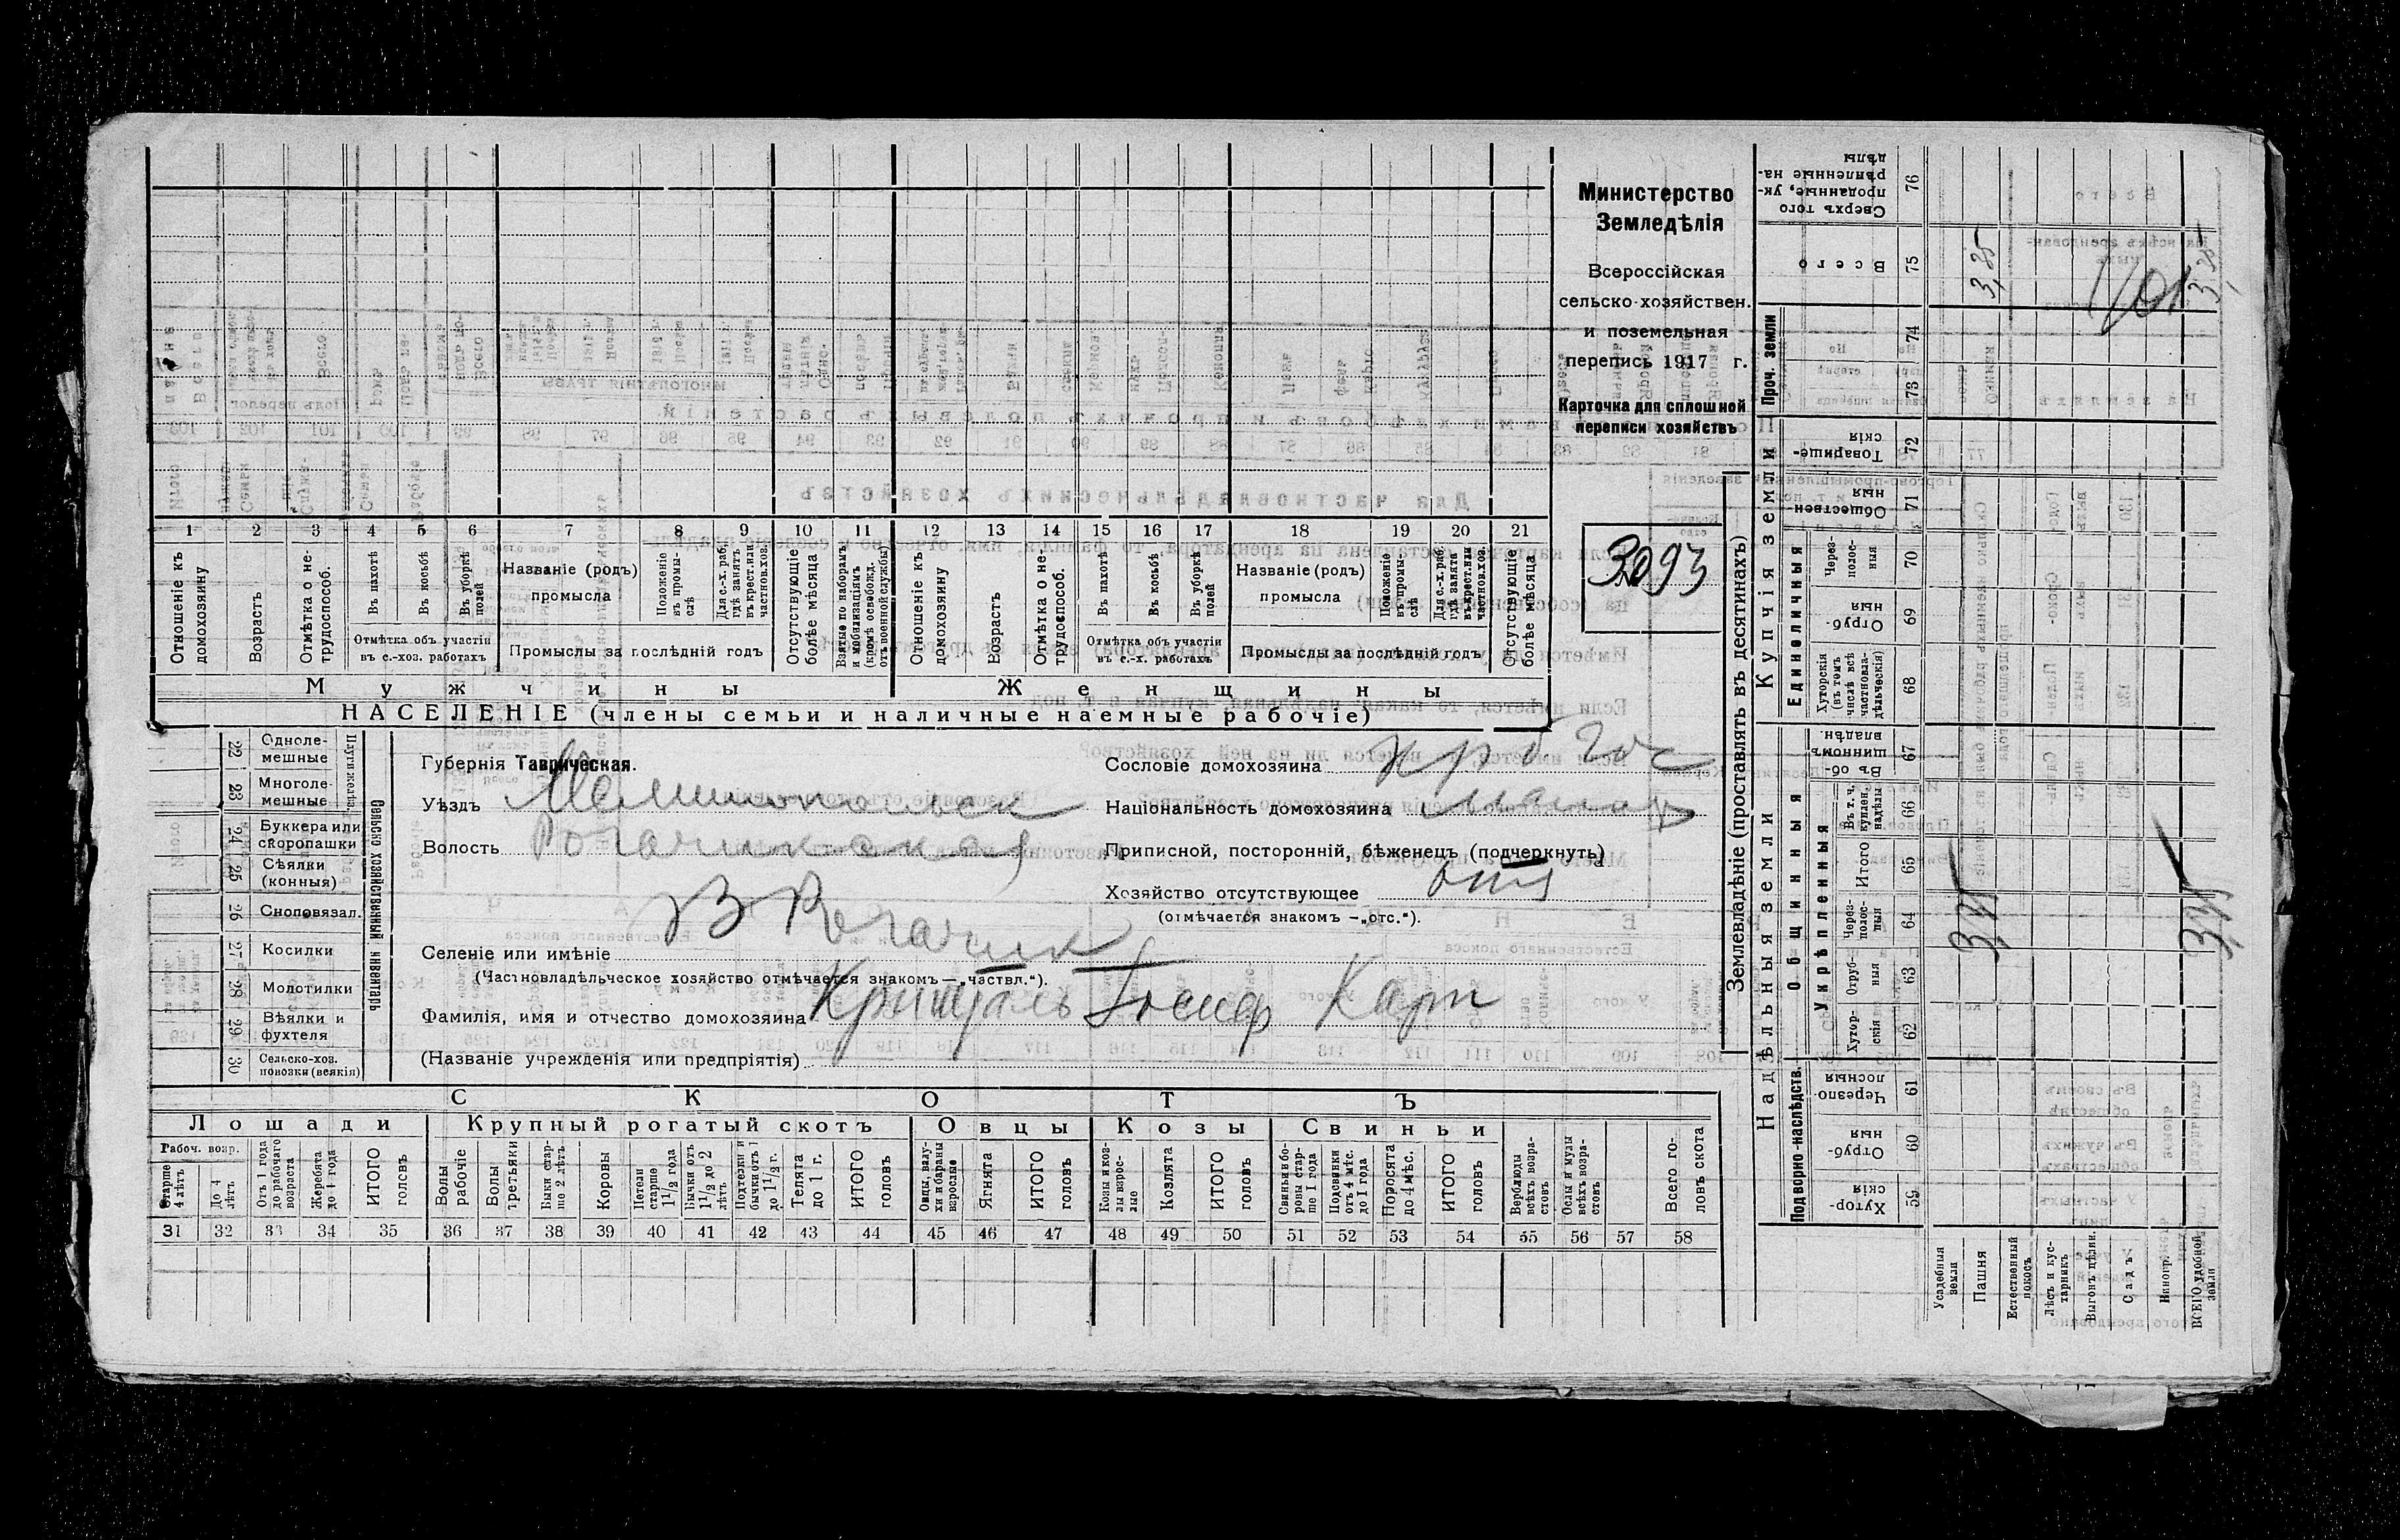 Министерство
Земледѣлія
Всероссійская
сельско-хозяйствен.
и поземельная
перепись 1917 г.
Карточка для сплошной
переписи хозяйствъ
3093
1 2 3 4 5 6 7 8 9 10 11 12 13 14 15 16 17 18 19 20 21
Отношеніе къ домохозяину
Возрастъ
Отмѣтка о не-трудоспособ.
Въ пахотѣ
Въ косьбѣ
Въ уборкѣ полей
Отмѣтка объ участіи
въ с.-хоз. работахъ
Названіе (родъ)
промысла
Положеніе въ промы-слѣ
Для с.-х. раб. гдѣ занятъ въ крест. или частнов. хоз.
Промыслы за послѣдній годъ
Отсутствующіе болѣе мѣсяца
Взятые по наборамъ и мобилизаціямъ (кромѣ освобожд. отъ военной службы)
Отношеніе къ домохозяину
Возрастъ
Отмѣтка о не-трудоспособ.
Въ пахотѣ
Въ косьбѣ
Въ уборкѣ полей
Отмѣтка объ участіи
въ с.-х. работахъ
Названіе (родъ)
промысла
Положеніе въ промы-слѣ
Для с.-х. раб. гдѣ занята въ крест. или частнов. хоз.
Промыслы за послѣдній годъ
Отсутствующіе болѣе мѣсяца
Мужчины
Женщины
НАСЕЛЕНІЕ (члены семьи и наличные наемные рабочіе)
Сельско хозяйственный инвентарь
22 Одноле-мешные
23 Многоле-мешные
24 Буккера или скоропашки
25 Сѣялки (конныя)
26 Сноповязал.
27 Косилки
28 Молотилки
29 Вѣялки и фухтеля
30 Сельско-хоз. повозки (всякія)
Губернія Таврическая.
Уѣздъ Мелитопольск
Волость Рогачикская
Селеніе или имѣніе В Рогачик
(Частновладѣльческое хозяйство отмѣчается знакомъ—„частвл.“).
Фамилія, имя и отчество домохозяина Иосиф Карп
(Названіе учрежденія или предпріятія)
Сословіе домохозяина
Національность домохозяина
Приписной, посторонній, бѣженецъ (подчеркнуть)
Хозяйство отсутствующее отс
(отмѣчается знакомъ —„отс.“).
СКОТЪ
Лошади
Крупный рогатый скотъ
Овцы
Козы
Свиньи
Рабоч. возр.
Старше 4 лѣтъ
До 4 лѣтъ
Отъ 1 года до рабочаго возраста
Жеребята до 1 года
ИТОГО головъ
Волы рабочіе
Волы третьяки
Быки стар-ше 2 лѣтъ
Коровы
Нетели старше 1 1/2 года
Бычки отъ 1 1/2 до 2 лѣтъ
Подтелки и бычки отъ 1 до 1 1/2 г.
Телята до 1 г.
ИТОГО головъ
Овцы, валу-хи и бараны взрослые
Ягнята
ИТОГО головъ
Козы и коз-лы взрос-лые
Козлята
ИТОГО головъ
Свиньи и бо-ровы стар-ше 1 года
Подсвинки отъ 4 мѣс. до 1 года
Поросята до 4 мѣс.
ИТОГО головъ
Верблюды всѣхъ возра-стовъ
Ослы и мулы всѣхъ возра-стовъ
Всего го-ловъ скота
31 32 33 34 35 36 37 38 39 40 41 42 43 44 45 46 47 48 49 50 51 52 53 54 55 56 57 58
Землевладѣніе (проставлять въ десятинахъ)
Надѣльныя земли
Купчія земли
Проч. земли
Подворно-наслѣдств.
Общинныя
Укрѣпленныя
Единоличныя
Сверхъ того проданные, ук-рѣпленные на-дѣлы 76
Всего 75
74
73
Товарище-скія 72
Обществен-ныя 71
Через-полос-ныя 70
Отруб-ныя 69
Хуторскія (въ томъ числѣ всѣ частновла-дѣльческія) 68
Въ об-щинномъ владѣн. 67
Въ т. ч. куплен. надѣлы 66
Итого 65
Через-полос-ныя 64
Отруб-ныя 63
Хутор-скія 62
Черезпо-лосныя 61
Отруб-ныя 60
Хутор-скія 59
Усадебныя земли
Пашня
Естественный покосъ
Лѣсъ и кус-тарникъ
Выгонъ цѣлин.
Садъ
Виногр.
ВСЕГО удобной земли
3,25
3,25
3,25
3,25